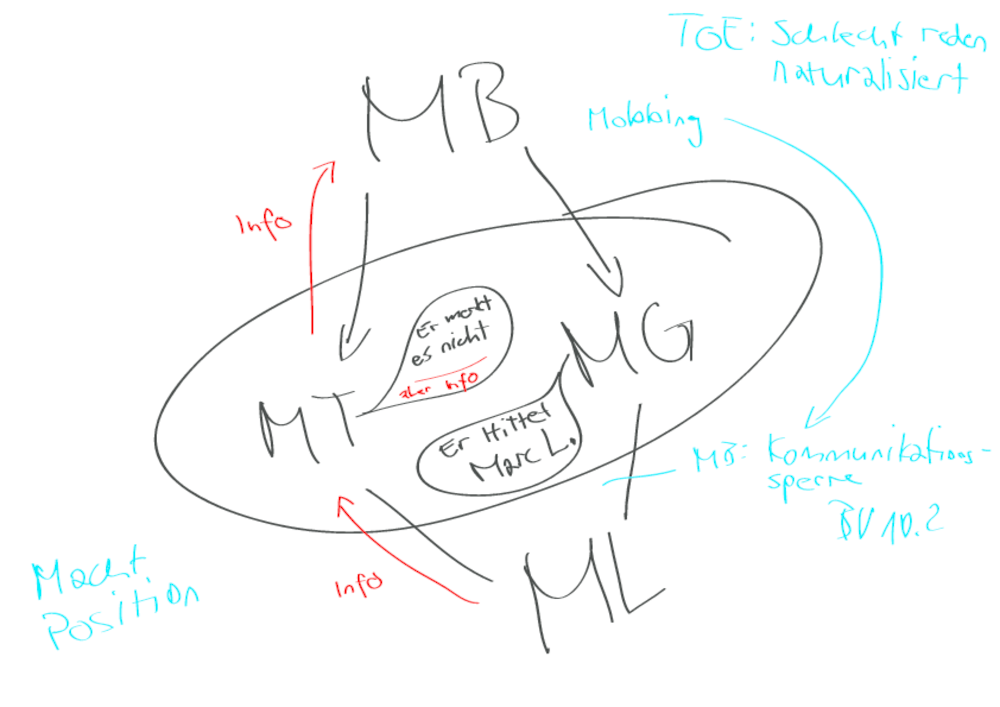 ToE: Schlecht reden
naturalisiert
MB
Mobbing
Info
Er merkt
es nicht
aber Info
MG
MT
Er
Marc L.
MB: Kommunikations-
sperre
BV 10.2
Macht
Position
Info
ML